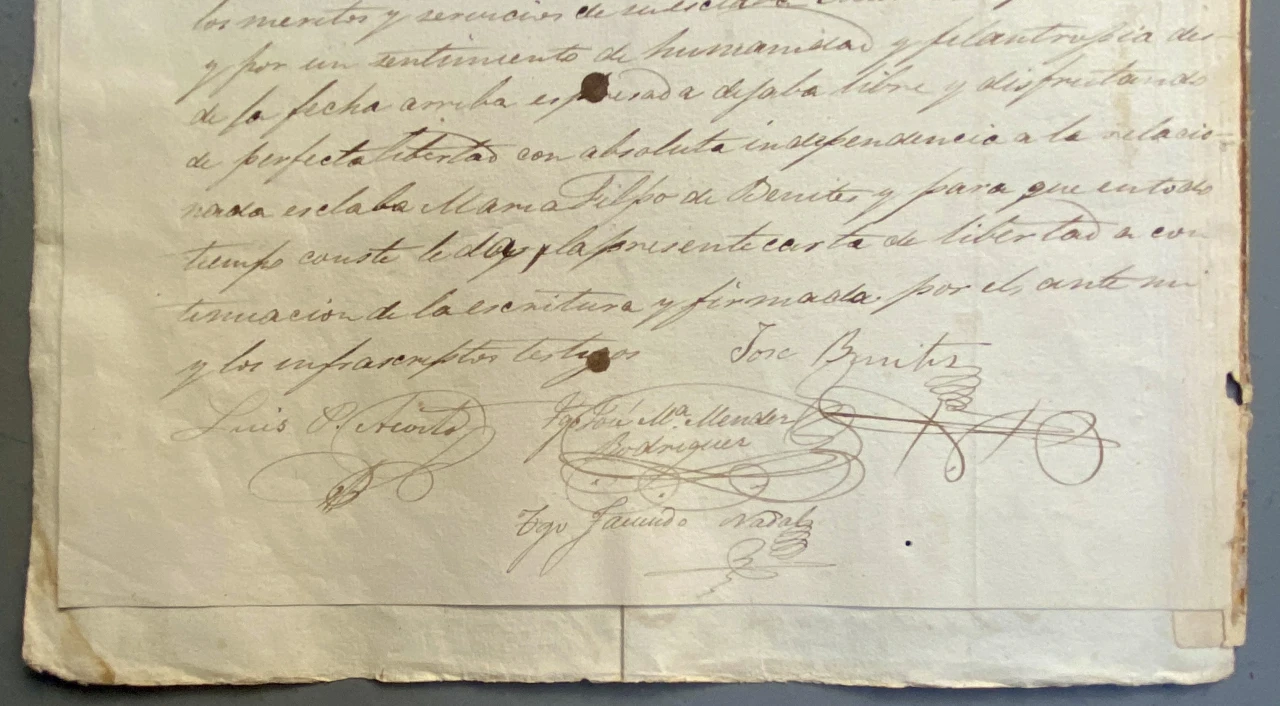 los meritos y servicios de su esclava
y por un sentimiento de humanidad y filantropia des-
de la fecha arriba espresada dejaba libre y disfrutando
de perfecta libertad con absoluta independencia a la relacio-
nada esclaba Maria Filpo de Benites y para que en todo
tiempo conste le da la presente carta de libertad a con
tinuacion de la escritura y firmada por el, ante mi
y los infrascriptos testigos Jose Benites
Luis P. Tgo José Ma. Mendez
Rodriguez
Tgo Facundo Nadal